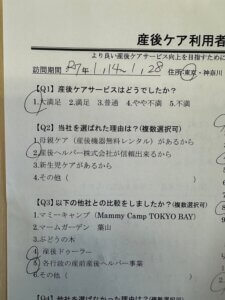 産後ケア利用者
より良い産後ケアサービス向上を目指すために
訪問期間 R7年 1,14〜1,28 住所:東京・神奈川
【Q1】産後ケアサービスはどうでしたか？
1.大満足 2.満足 3.普通 4.やや不満 5.不満
【Q2】当社を選ばれた理由は？(複数選択可)
1.母乳外来 (産後機器無料レンタル) があるから
2.産後ヘルパー株式会社が信頼出来るから
3.新生児ケアがあるから
4.その他 (
【Q3】以下の他社との比較をしましたか？(複数選択可)
1.マミーキャンプ (Mammy Camp TOKYO BAY)
2.マームガーデン 葉山
3.ぶどうの木
4.産後ドゥーラー
5.各行政の産前産後ヘルパー事業
6.その他 (
【Q4】当社を選ばなかった理由は？(複数